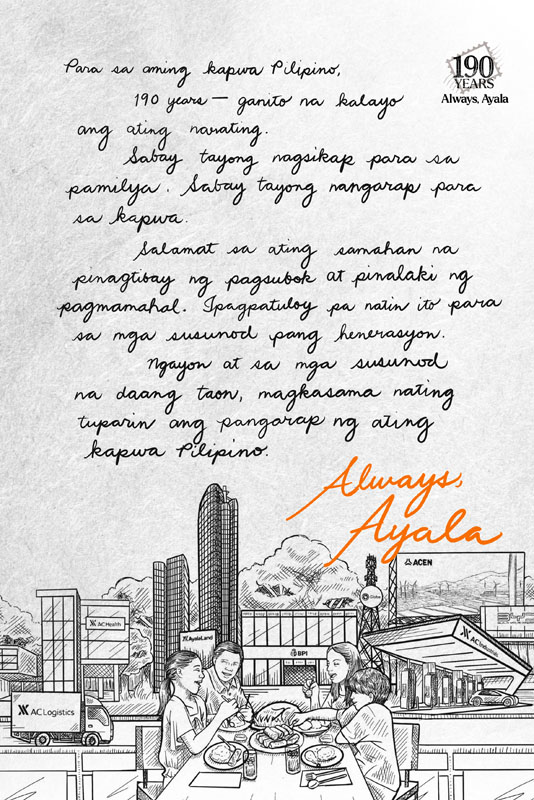 190
YEARS
Always, Ayala
Para sa aming kapwa Pilipino,
190 years — ganito na kalayo
ang ating narating.
Sabay tayong nagsikap para sa
pamilya. Sabay tayong nangarap para
sa kapwa.
Salamat sa ating samahan na
pinagtibay ng pagsubok at pinalaki ng
pagmamahal. Ipagpatuloy pa natin ito para
sa mga susunod pang henerasyon.
Ngayon at sa mga susunod
na daang taon, magkasama nating
tuparin ang pangarap ng ating
kapwa Pilipino.
Always,
Ayala
ACEN
Globe
AC Health
AyalaLand
BPI
AC Industrials
AC Logistics